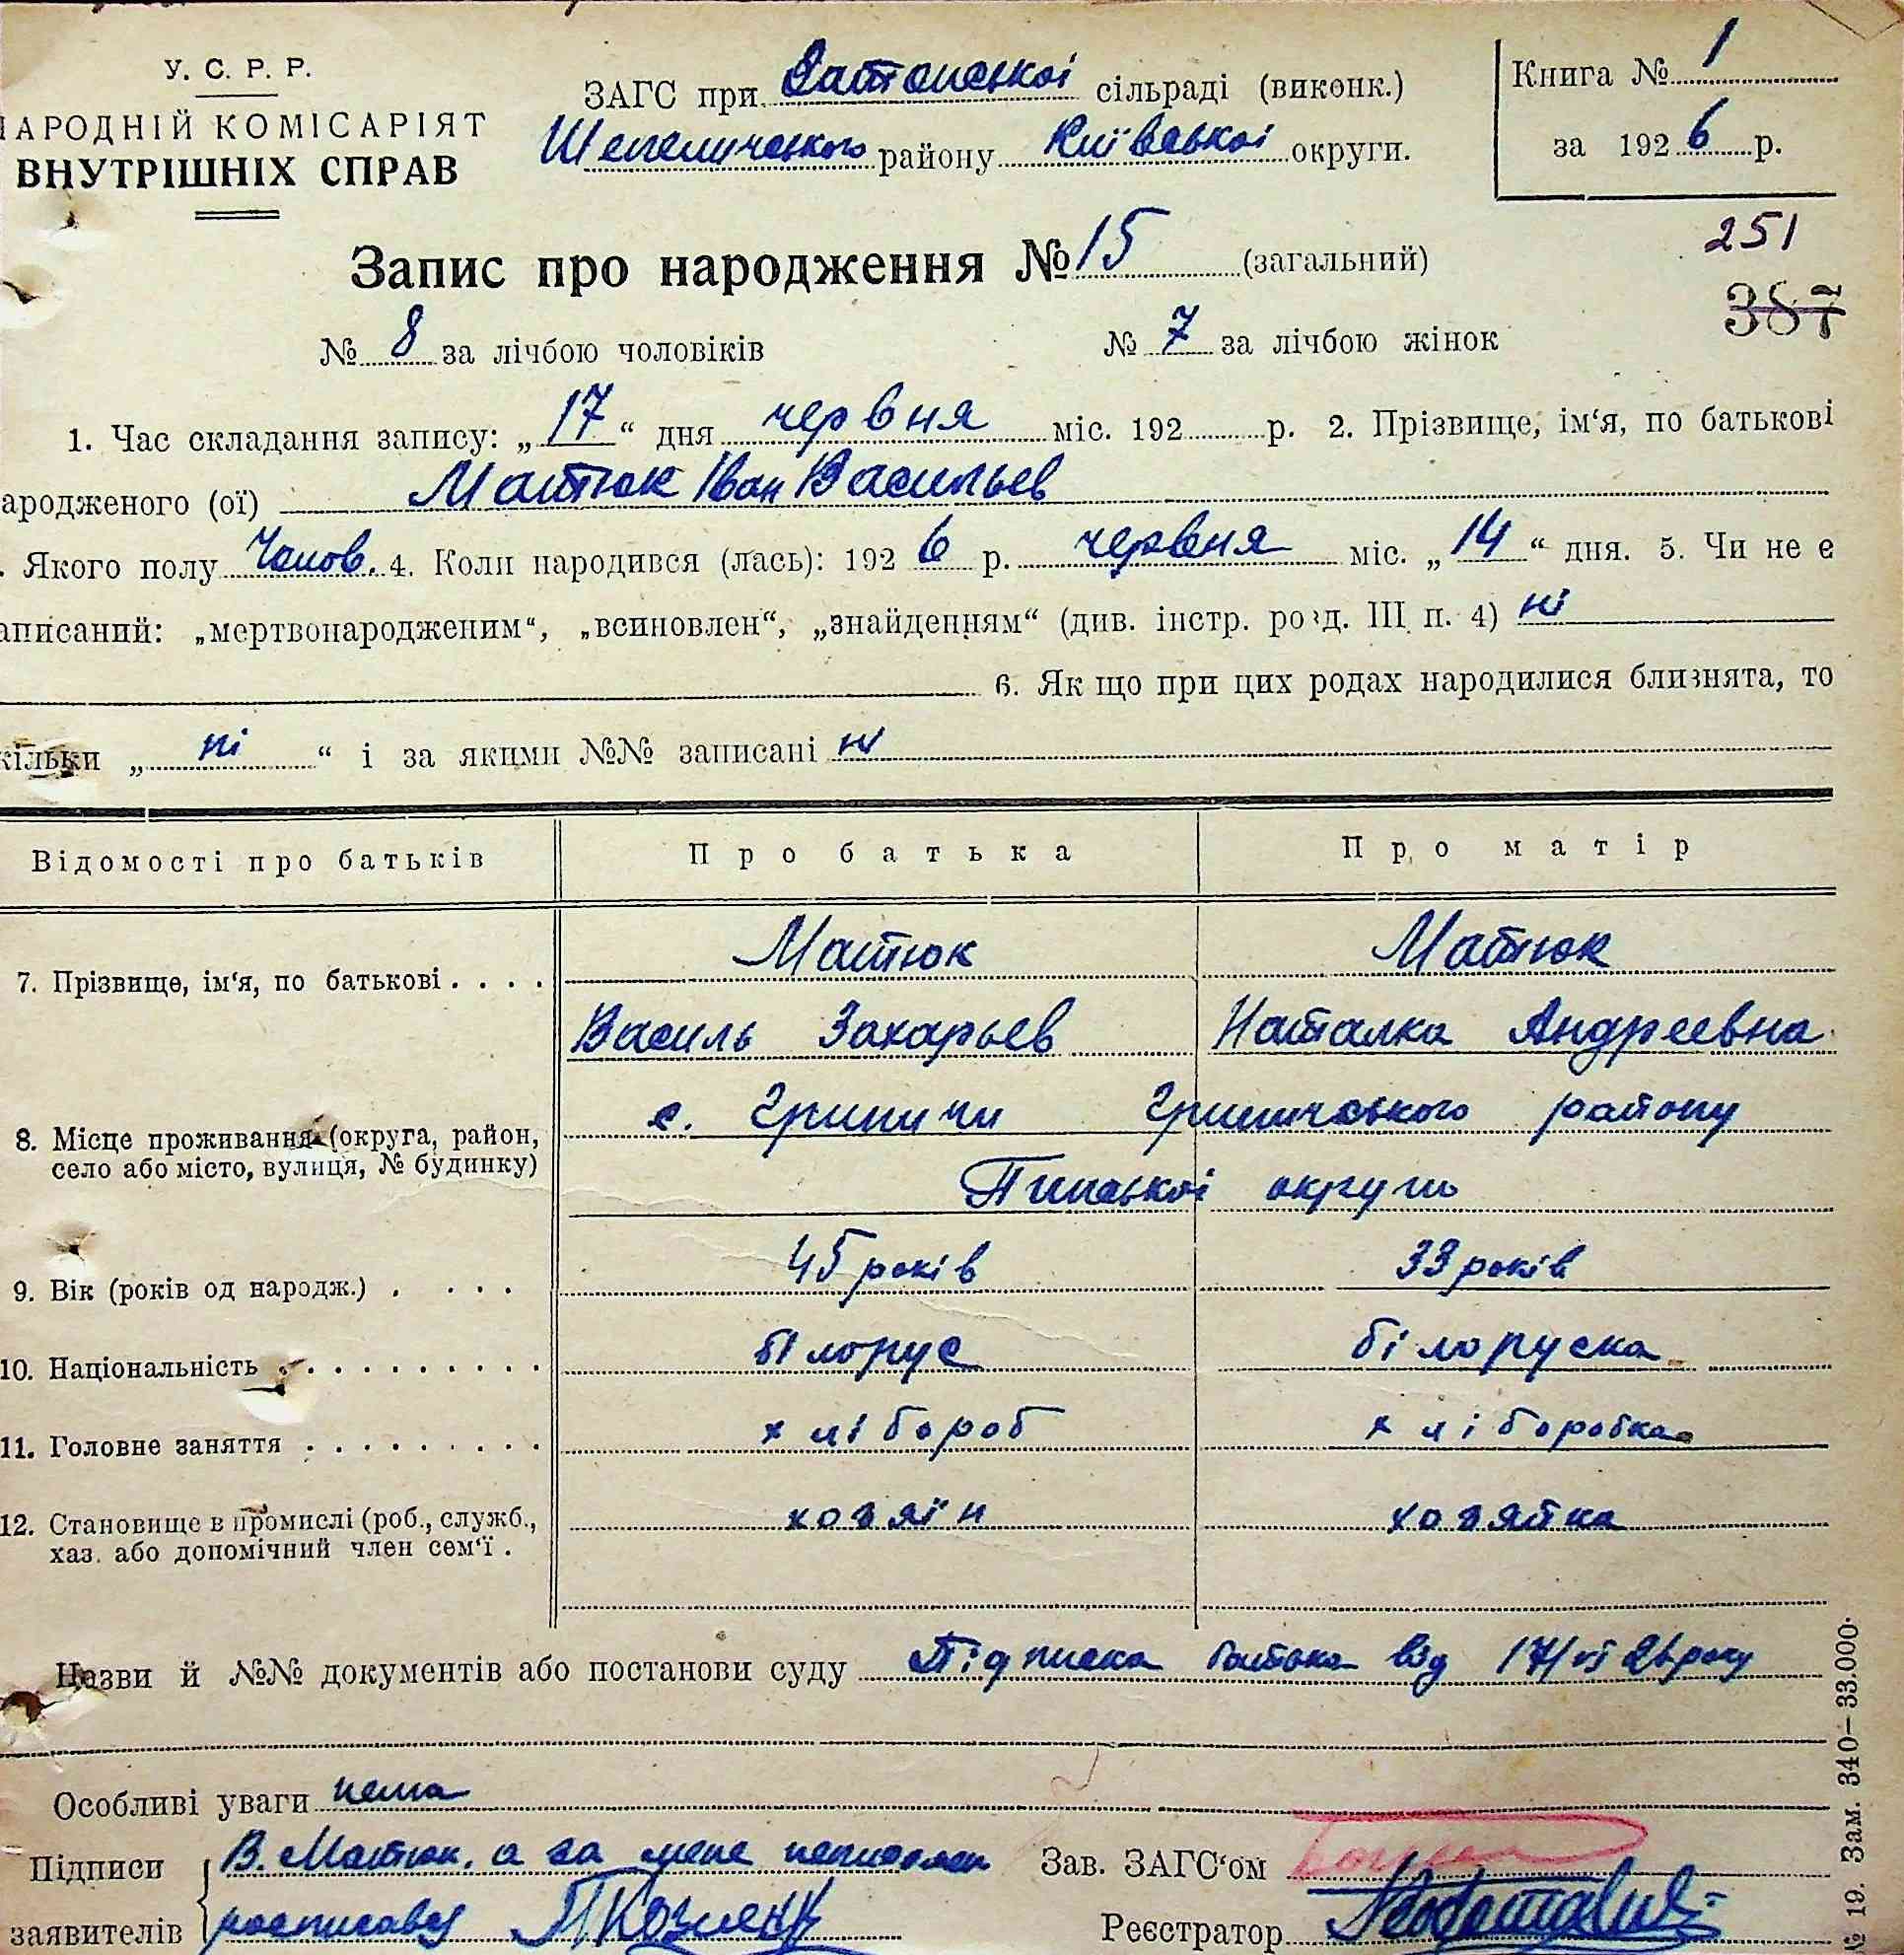 У. С. Р. Р.
АРОДНІЙ КОМІСАРІЯТ
ВНУТРІШНІХ СПРАВ
ЗАГС при сільраді (виконк.)
Шепелицського району Київської округи.
Книга № 1
за 1926 р.
Запис про народження № 15 (загальний)
251
387
№ 8 за лічбою чоловіків № 7 за лічбою жінок
1. Час складання запису: „17“ дня червня міс. 192 р. 2. Прізвище, ім‘я, по батькові
ародженого (ої) Матюк Іван Васильев
. Якого полу Чолов. 4. Коли народився (лась): 1926 р. червня міс. „14“ дня. 5. Чи не є
аписаний: „мертвонародженим“, „всиновлен“, „знайденням“ (див. інстр. розд. III п. 4) ні
6. Як що при цих родах народилися близнята, то
кільки „ні“ і за якими №№ записані ні
Відомості про батьків Про батька Про матір
Матюк Матюк
7. Прізвище, ім‘я, по батькові . . . .
Василь Захарьев Наталка Андреевна
с. району
8. Місце проживання (округа, район,
село або місто, вулиця, № будинку)
округи
9. Вік (років од народж.) . . . . 45 років 33 років
10. Національність . . . . . . . . . . білорус білоруска
11. Головне заняття . . . . . . . . . хлібороб хліборобка
12. Становище в промислі (роб., служб., хозяїн хозяйка
хаз. або допомічний член сем‘ї .
Назви й №№ документів або постанови суду Підписка батька від 17/VI 26 року
Особливі уваги нема
Підписи В. Матюк, а за мене
заявителів росписався
Зав. ЗАГС‘ом
Реєстратор
№ 19. Зам. 340—33.000.